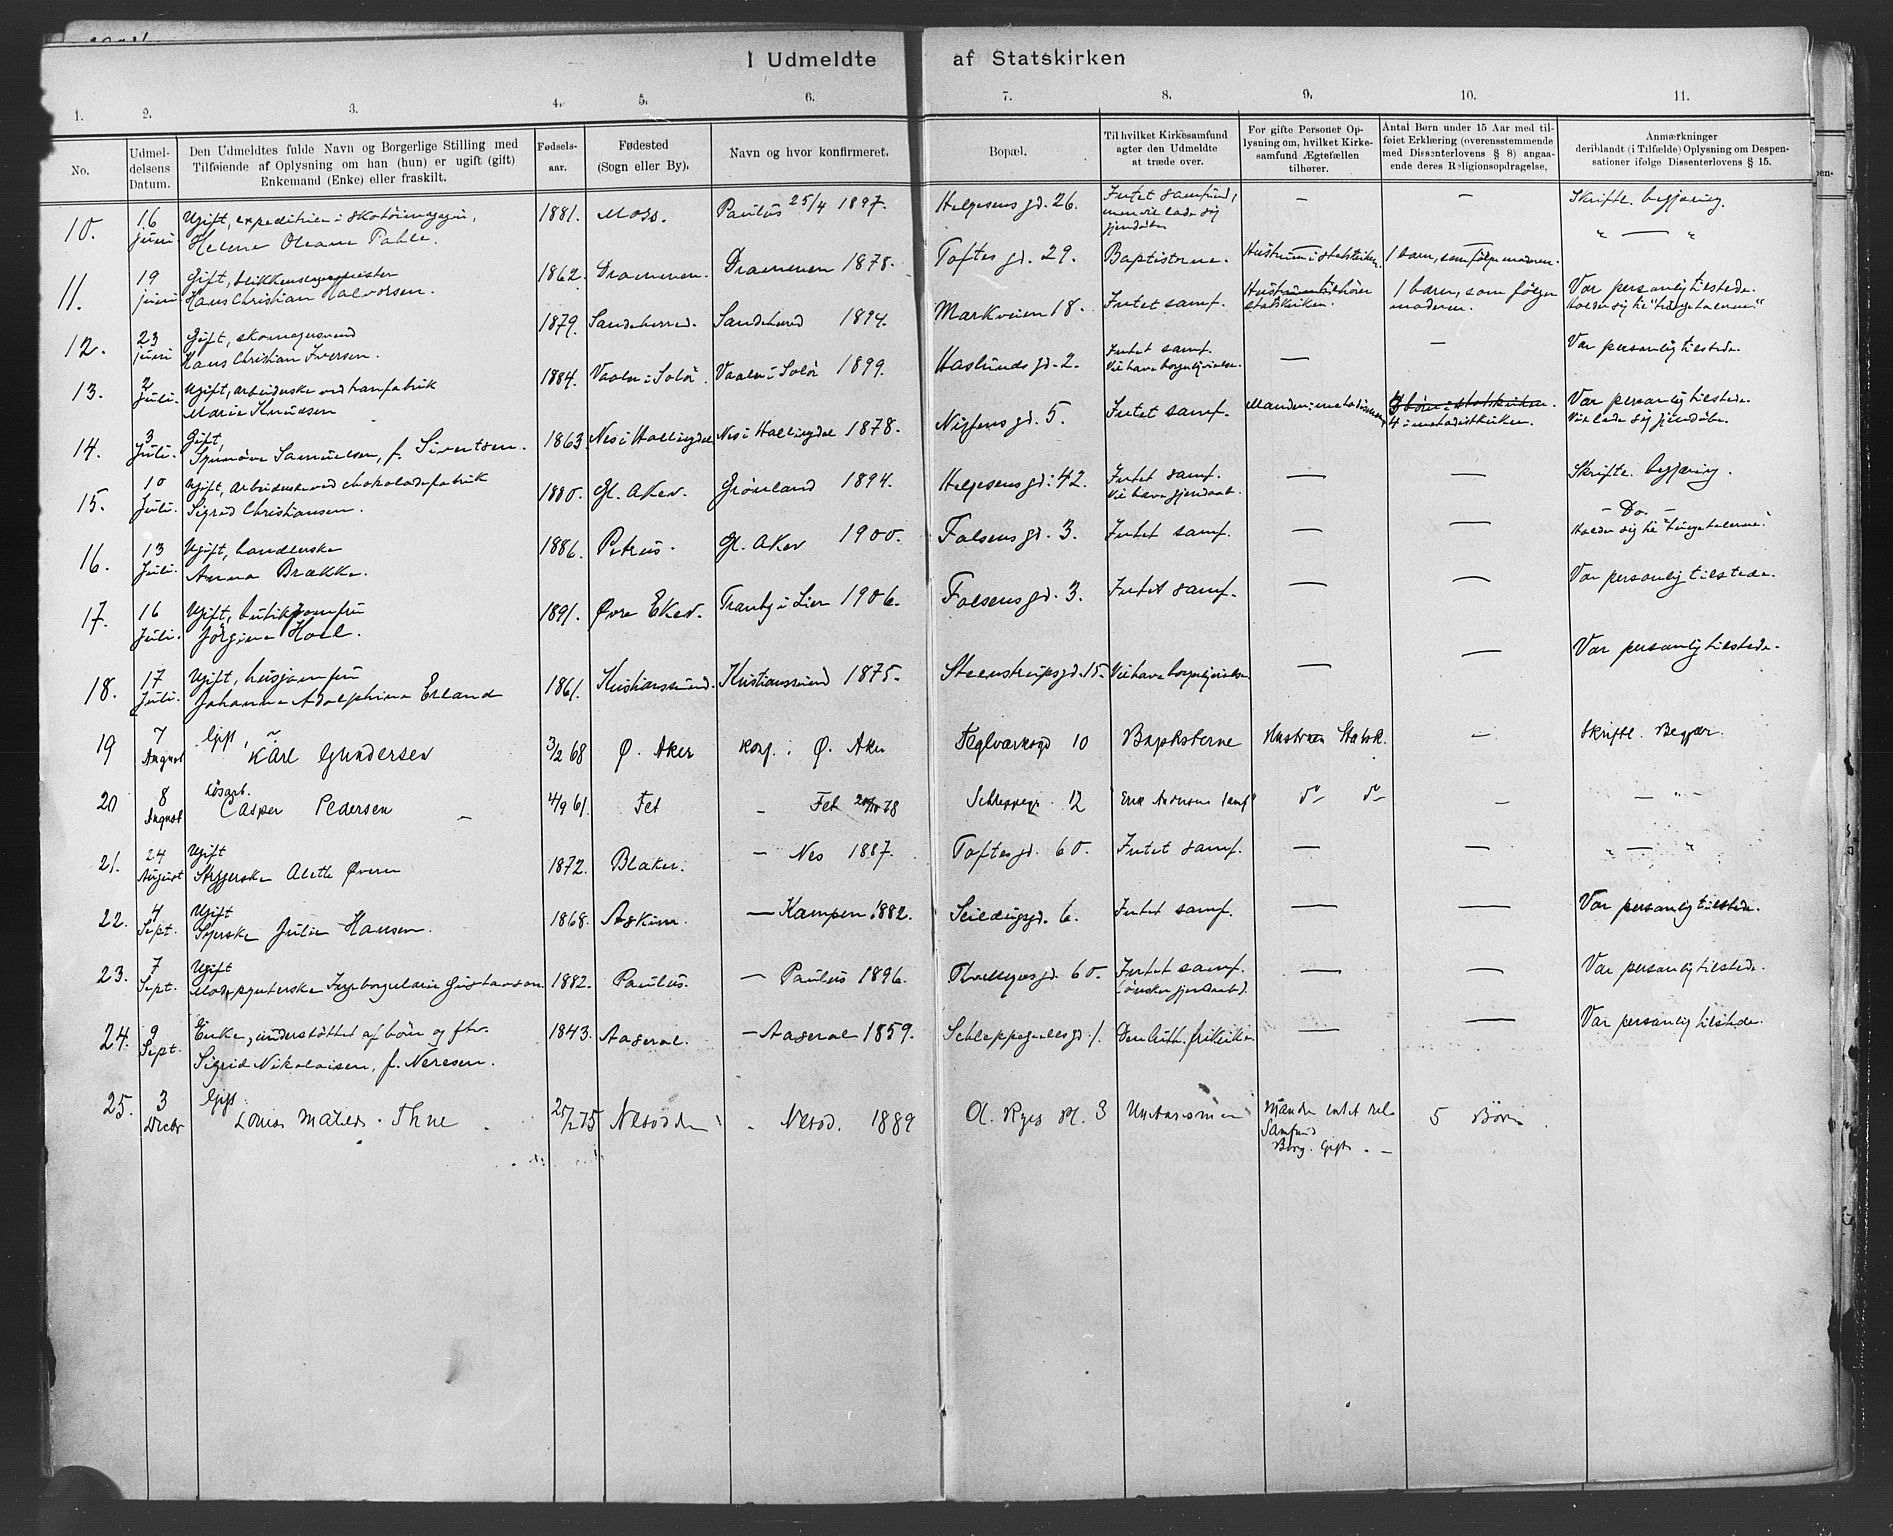 I Udmeldte af Statskirken
1. 2. 3. 4. 5. 6. 7. 8. 9. 10. 11.
No.
Udmel-
delsens
Datum.
Den Udmeldtes fulde Navn og Borgerlige Stilling med
Tilføiende af Oplysning om han (hun) er ugift (gift)
Enkemand (Enke) eller fraskilt.
Fødsels-
aar.
Fødested
(Sogn eller By).
Navn og hvor konfirmeret.
Bopæl.
Til hvilket Kirkesamfund
agter den Udmeldte
at træde over.
For gifte Personer Op-
lysning om, hvilket Kirke-
samfund Ægtefællen
tilhører.
Antal Børn under 15 Aar med til-
føiet Erklæring (overensstemmende
med Dissenterlovens § 8) angaa-
ende deres Religionsopdragelse.
Anmærkninger
deriblandt (i Tilfælde) Oplysning om Despen-
sationer ifølge Dissenterlovens § 15.
10. 16 juni Ugift, expeditrice i skotøimagasin, 1881. Moss. Paulus 25/4 1897. Helgesens gd. 26. Intet samfund, — — Skriftl. begjæring.
Helene Oleane Pahle. men vil lade sig
gjendøbe
11. 19 juni Gift, blikkenslagermester 1862. Drammen. Drammen 1878. Toftes gd. 29. Baptisterne. Hustruen i statskirken. 1 barn, som følge moderen. " — "
Hans Christian Halvorsen.
12. 23 juni Gift, skomagersvend 1879. Sandeherred. Sandeherred 1894. Markveien 18. Intet samf. Hustruen tilhører 1 barn, som følger Var personlig tilstede.
Hans Christian Iversen. statskirken. moderen. Holder sig til "tungetalerne"
13. 2 Juli. Ugift, arbeiderske ved hanfabrik 1884. Vaaler i Solør. Vaaler i Solør 1899. Haslunds gd. 2. Intet samf. — — Var personlig tilstede.
Marie Knudsen Vil have borgerlig vielse.
14. 3 Juli. Gift, 1863. Nes i Hallingdal Nes i Hallingdal 1878. Nissens gd. 5. Intet samf. Manden i metodistk. 3 børn i statskirken. Var personlig tilstede.
Synnøve Samuelsen, f. Sivertsen. 4 i metodistkirken. Vil lade sig gjendøbe.
15. 10 Juli. Ugift, arbeiderske ved chokoladefabrik 1880. Gl. Aker. Grønland 1894. Helgesens gd. 42. Intet samf. — — Skriftl. begjæring.
Sigrid Christiansen. Vil have gjendaab.
16. 13 Juli. Ugift, handlerske 1886. Petrus. Gl. Aker 1900. Falsens gd. 3. Intet samf. — — — Do. —
Anna Brække. Holder sig til "tungetalerne".
17. 16 Juli. Ugift, butikjomfru 1891. Øvre Eker. Tranby i Lier 1906. Falsens gd. 3. Intet samf. — — Var personlig tilstede.
Jørgine Hoel.
18. 17 Juli. Ugift, husjomfru 1861. Kristianssund. Kristianssund 1875. Steenstrupsgd. 15. Vil have borgerlig vielse — — Var personlig tilstede.
Johanna Adolphina Erland
19 7 August Gift, Karl Gundersen 3/2 68 Ø. Aker konf. i Ø. Aker Teglværksgd 10 Baptisterne Hustruen Statsk. — Skriftl. Begjær.
20 8 August Løsarb. Casper Pedersen 4/9 61. Fet — Fet 78 Schleppegr. 12 Erik Andersens samf do do — — " —
21. 24 August Ugift 1872. Blaker. — Nes 1887. Toftes gd. 60. Intet samf. — — " — "
Strygerske Alette Øveren
22. 4 Sept. Ugift 1868. Askim. — Kampen 1882. Seildugsgd. 6. Intet samf. — — Var personlig tilstede.
Syerske Julie Hansen.
23. 7 Sept. Ugift 1882. Paulus. — Paulus 1896. Thv. Meyers gd. 60. Intet samf. — — Var personlig tilstede.
Modepynterske Ingeborg Marie Gustavson (ønsker gjendaab).
24. 9 Sept. Enke, understøttet af børn og ftv. 1843. Aaseral. — Aaseral 1859. Schleppegrells gd. 1. Den luth. frikirke — — Var personlig tilstede.
Sigrid Nikolaisen, f. Neresen.
25. 3 Decbr Gift. Lovise Matilde Thue 25/2 75 Nesodden — Nesod. 1889 Ol. Ryes Pl. 3 Unitarismen Manden intet rel. 5 Børn
Samfund
Borg. Gift. —